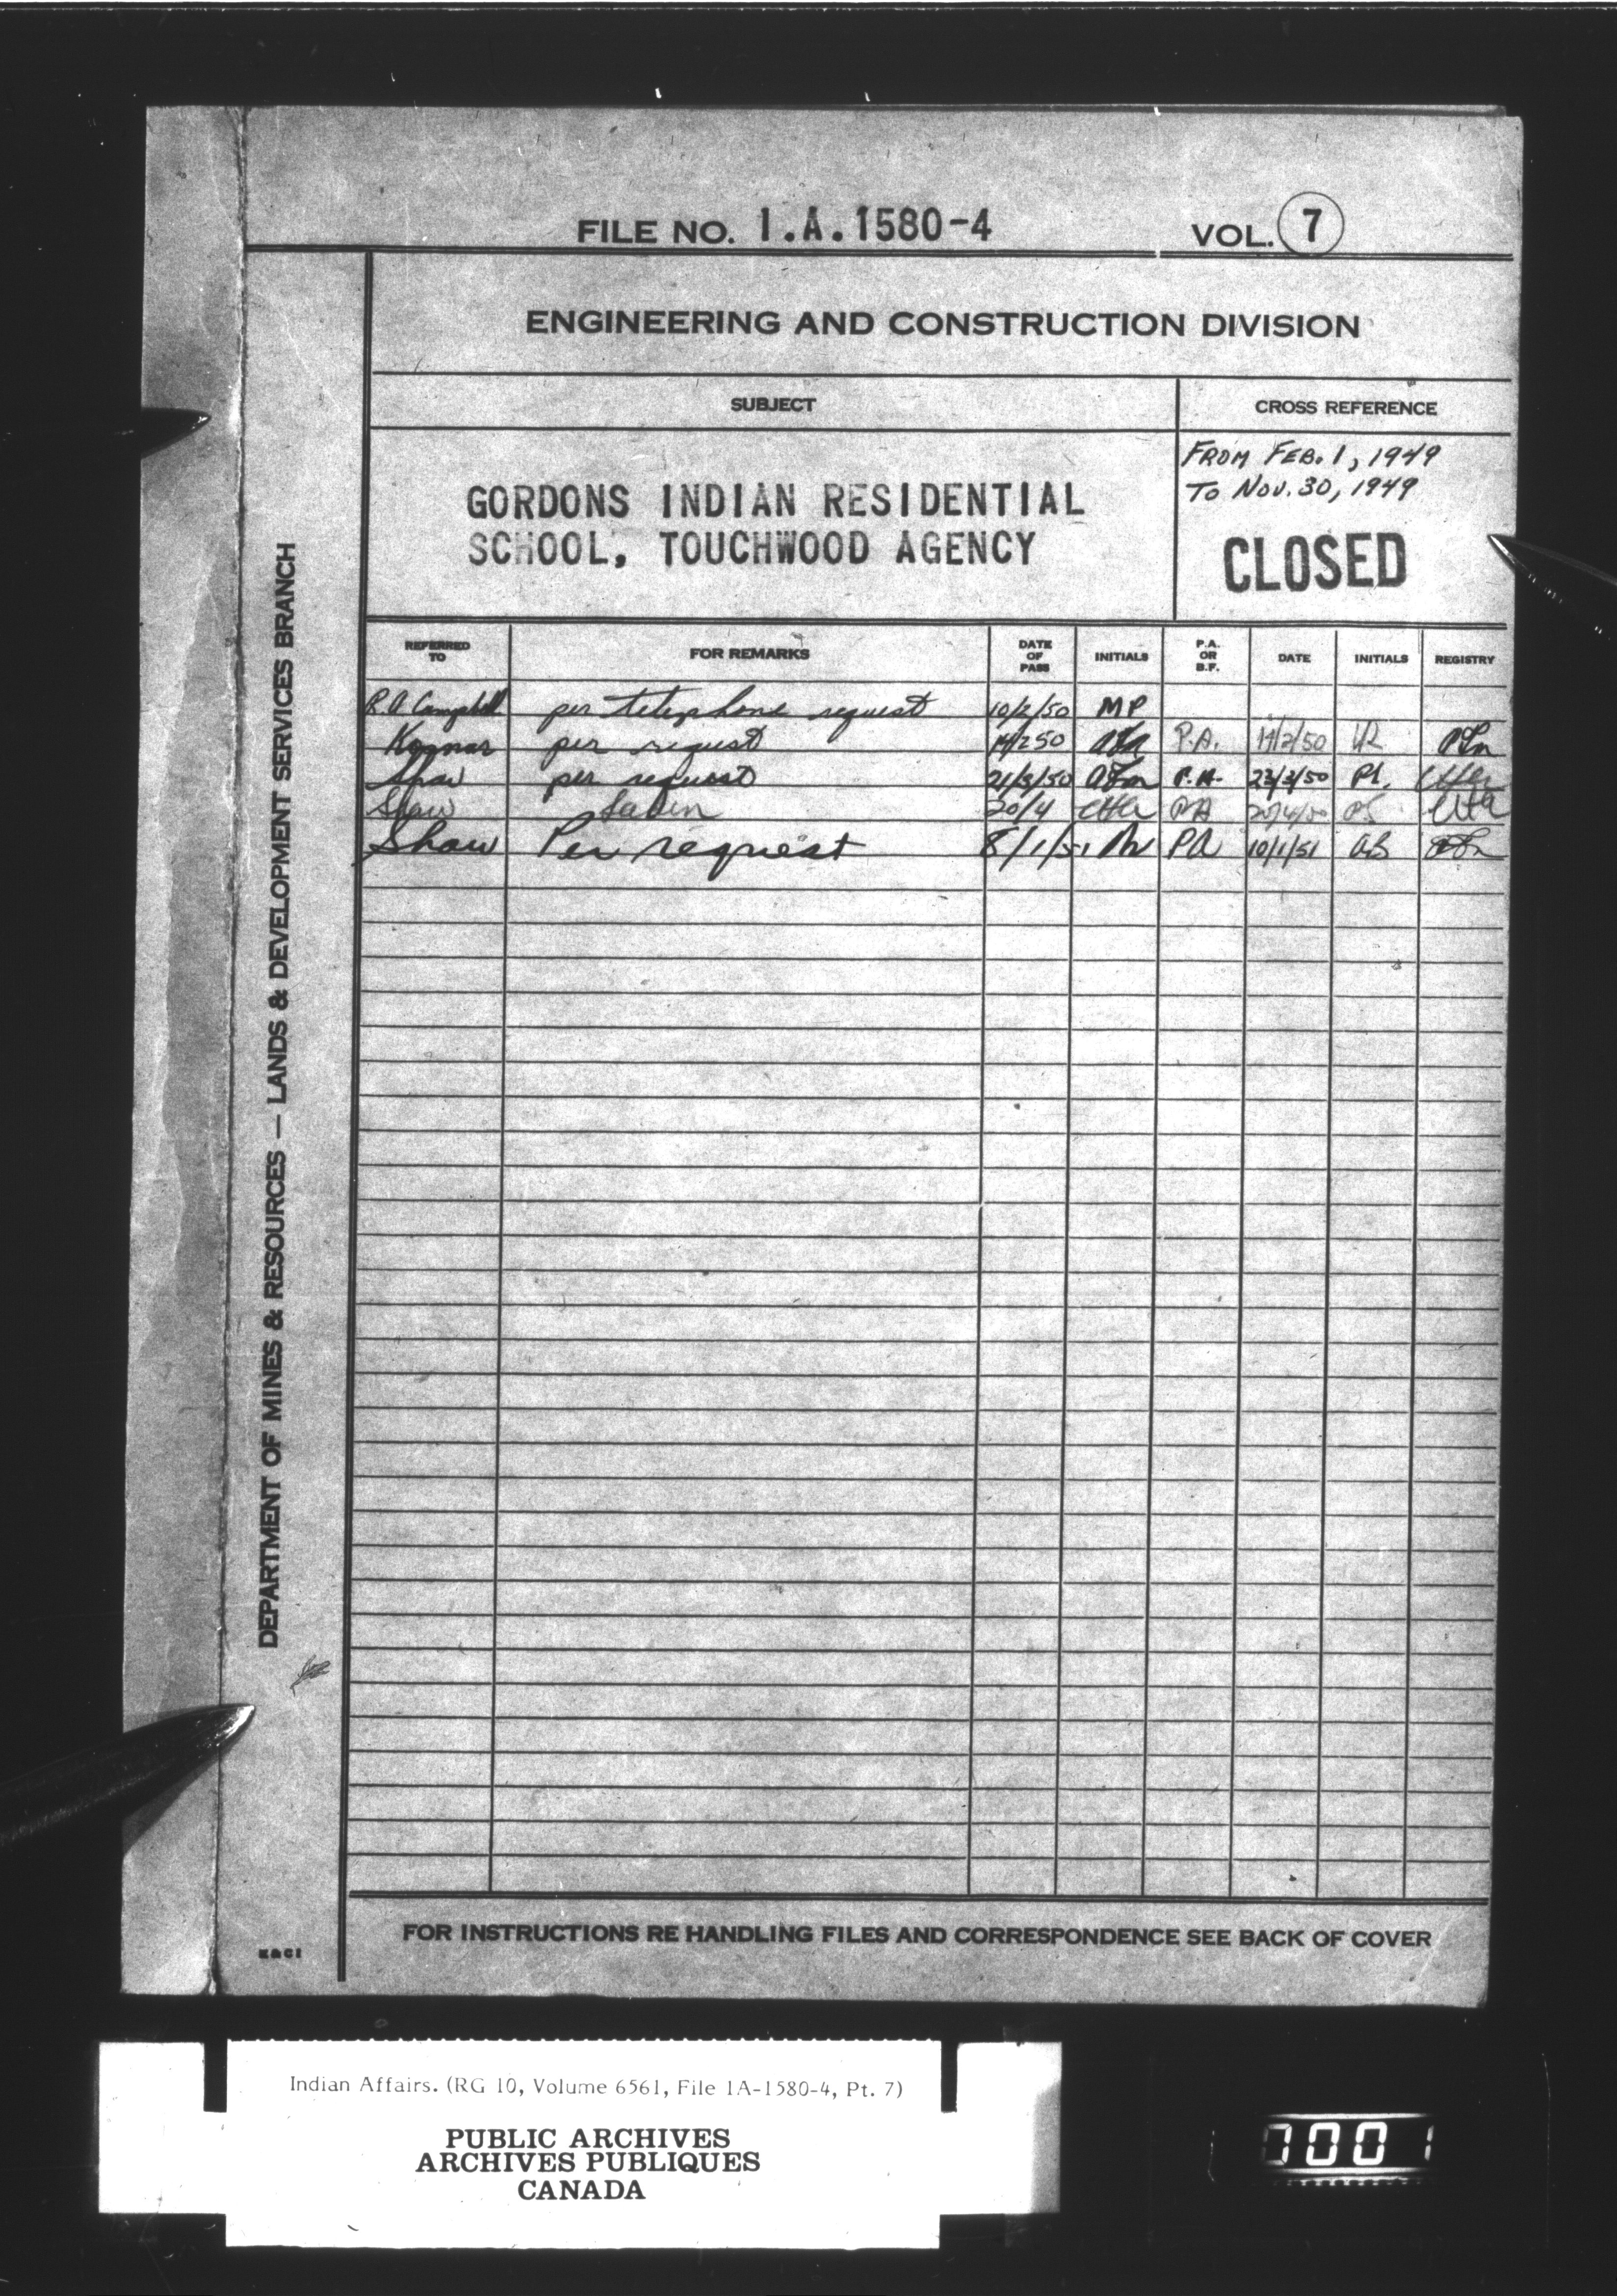 FILE NO. I.A.1580-4 VOL. 7
ENGINEERING AND CONSTRUCTION DIVISION
SUBJECT CROSS REFERENCE
FROM FEB. 1, 1949
TO NOV. 30, 1949
GORDONS INDIAN RESIDENTIAL
SCHOOL, TOUCHWOOD AGENCY
CLOSED
REFERRED TO FOR REMARKS DATE OF PASS INITIALS P.A. OR B.F. DATE INITIALS REGISTRY
R.A. Campbell per telephone request 10/2/50 MP
per request 14/2 50 P.A. 14/2/50
Shaw per request 21/3/50 P.A. 23/3/50
Shaw 20/4 PA 20/4/50
Shaw Per request 8/1/51 PA 10/1/51
DEPARTMENT OF MINES & RESOURCES — LANDS & DEVELOPMENT SERVICES BRANCH
E & C 1
FOR INSTRUCTIONS RE HANDLING FILES AND CORRESPONDENCE SEE BACK OF COVER
Indian Affairs. (RG 10, Volume 6561, File 1A-1580-4, Pt. 7)
PUBLIC ARCHIVES
ARCHIVES PUBLIQUES
CANADA
0001